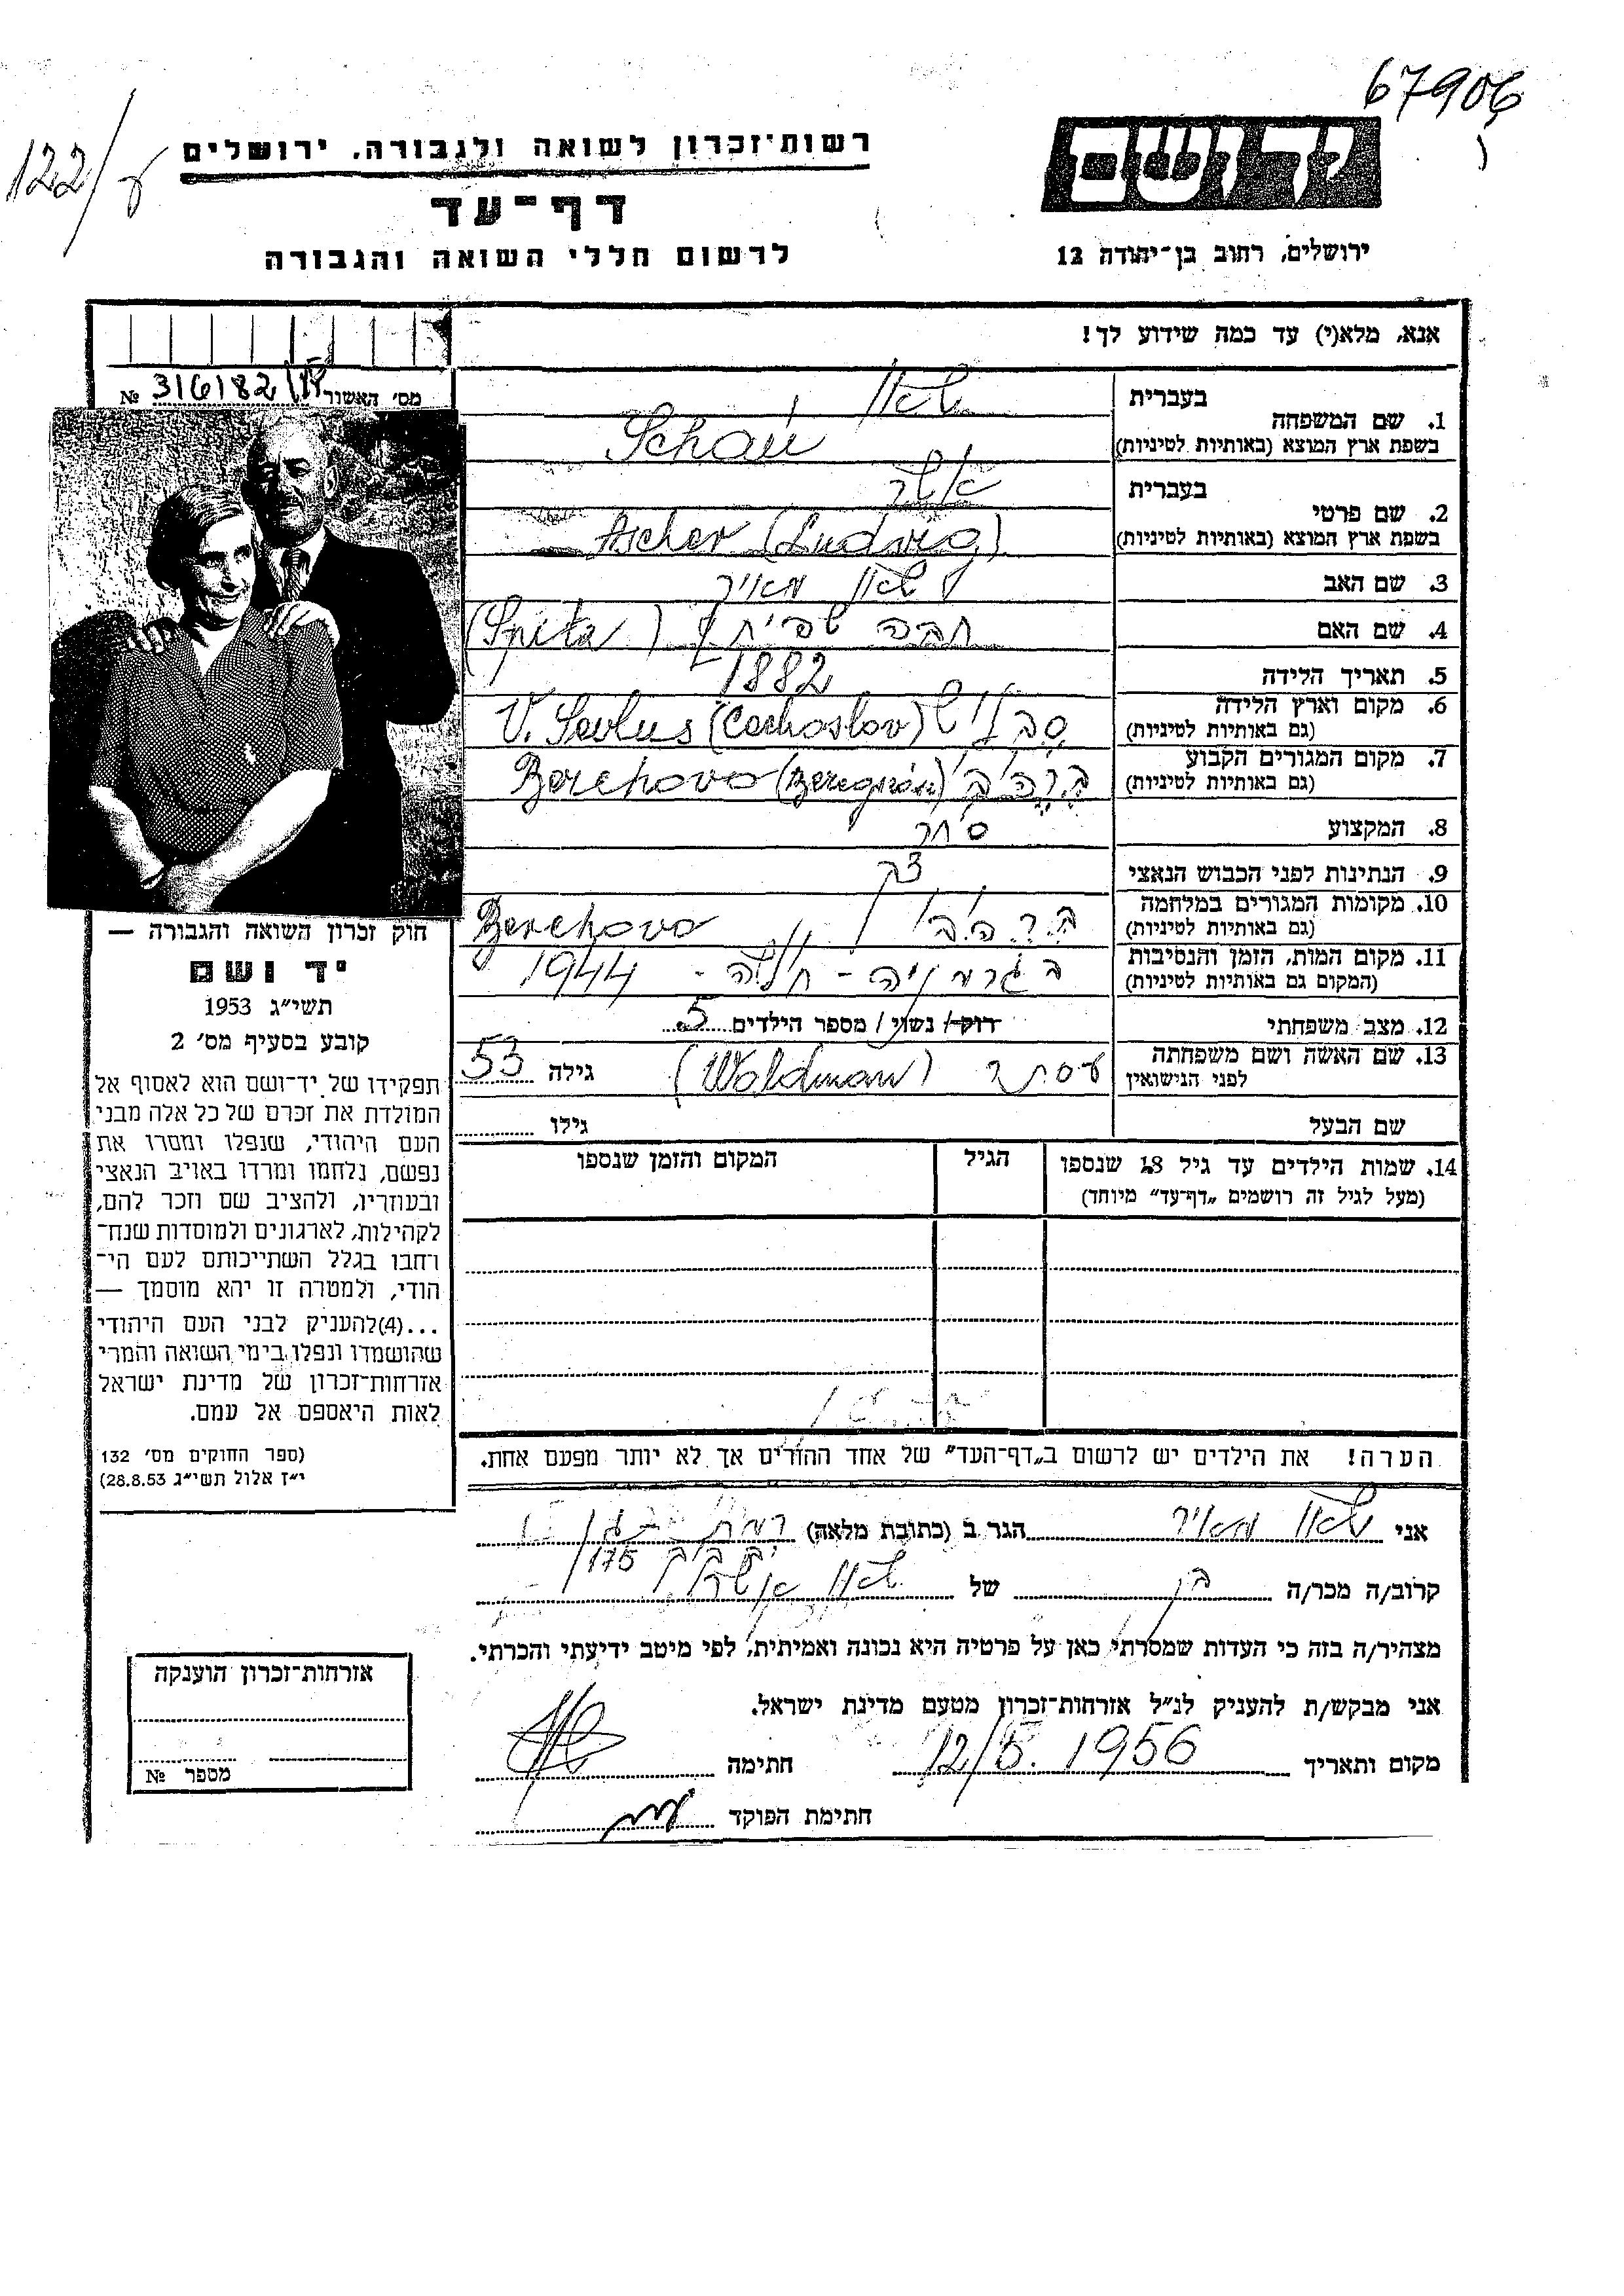 67906
122/ע
רשות־זכרון לשואה ולגבורה, ירושלים
דף־עד
לרשום חללי השואה והגבורה
יד ושם
ירושלים, רחוב בן־יהודה 12
אנא, מלא(י) עד כמה שידוע לך!
מס׳ האשור 316182 №
1. שם המשפחה
בעברית
בשפת ארץ המוצא (באותיות לטיניות) Schön
2. שם פרטי
בעברית אשר
בשפת ארץ המוצא (באותיות לטיניות) Ascher (Ludwig)
3. שם האב מאיר
4. שם האם חנה (Spitz)
5. תאריך הלידה 1882
6. מקום וארץ הלידה
(גם באותיות לטיניות) V. Sevlus (Cechoslov)
7. מקום המגורים הקבוע
(גם באותיות לטיניות) Berehovo
8. המקצוע סוחר
9. הנתינות לפני הכבוש הנאצי
10. מקומות המגורים במלחמה
(גם באותיות לטיניות) Berehovo
11. מקום המות, הזמן והנסיבות
(המקום גם באותיות לטיניות) בגרמניה - 1944
12. מצב משפחתי רוק/ נשוי / מספר הילדים 5
13. שם האשה ושם משפחתה
לפני הנישואין אסתר (Waldman) גילה 53
שם הבעל גילו
14. שמות הילדים עד גיל 18 שנספו
(מעל לגיל זה רושמים „דף־עד״ מיוחד)
הגיל
המקום והזמן שנספו
הערה! את הילדים יש לרשום ב„דף־העד״ של אחד ההורים אך לא יותר מפעם אחת.
אני מאיר הגר ב (כתובת מלאה) רמת
175
קרוב/ה מכר/ה בן של אשר
מצהיר/ה בזה כי העדות שמסרתי כאן על פרטיה היא נכונה ואמיתית, לפי מיטב ידיעתי והכרתי.
אני מבקש/ת להעניק לנ״ל אזרחות־זכרון מטעם מדינת ישראל.
מקום ותאריך 12/5. 1956 חתימה
חתימת הפוקד
חוק זכרון השואה והגבורה —
יד ושם
תשי״ג 1953
קובע בסעיף מס׳ 2
תפקידו של יד־ושם הוא לאסוף אל
המולדת את זכרם של כל אלה מבני
העם היהודי, שנפלו ומסרו את
נפשם, נלחמו ומרדו באויב הנאצי
ובעוזריו, ולהציב שם וזכר להם,
לקהילות, לארגונים ולמוסדות שנח־
רחבו בגלל השתייכותם לעם הי־
הודי, ולמטרה זו יהא מוסמך —
...(4)להעניק לבני העם היהודי
שהושמדו ונפלו בימי השואה והמרי
אזרחות־זכרון של מדינת ישראל
לאות היאספם אל עמם.
(ספר החוקים מס׳ 132
י״ז אלול תשי״ג 28.8.53)
אזרחות־זכרון הוענקה
מספר №